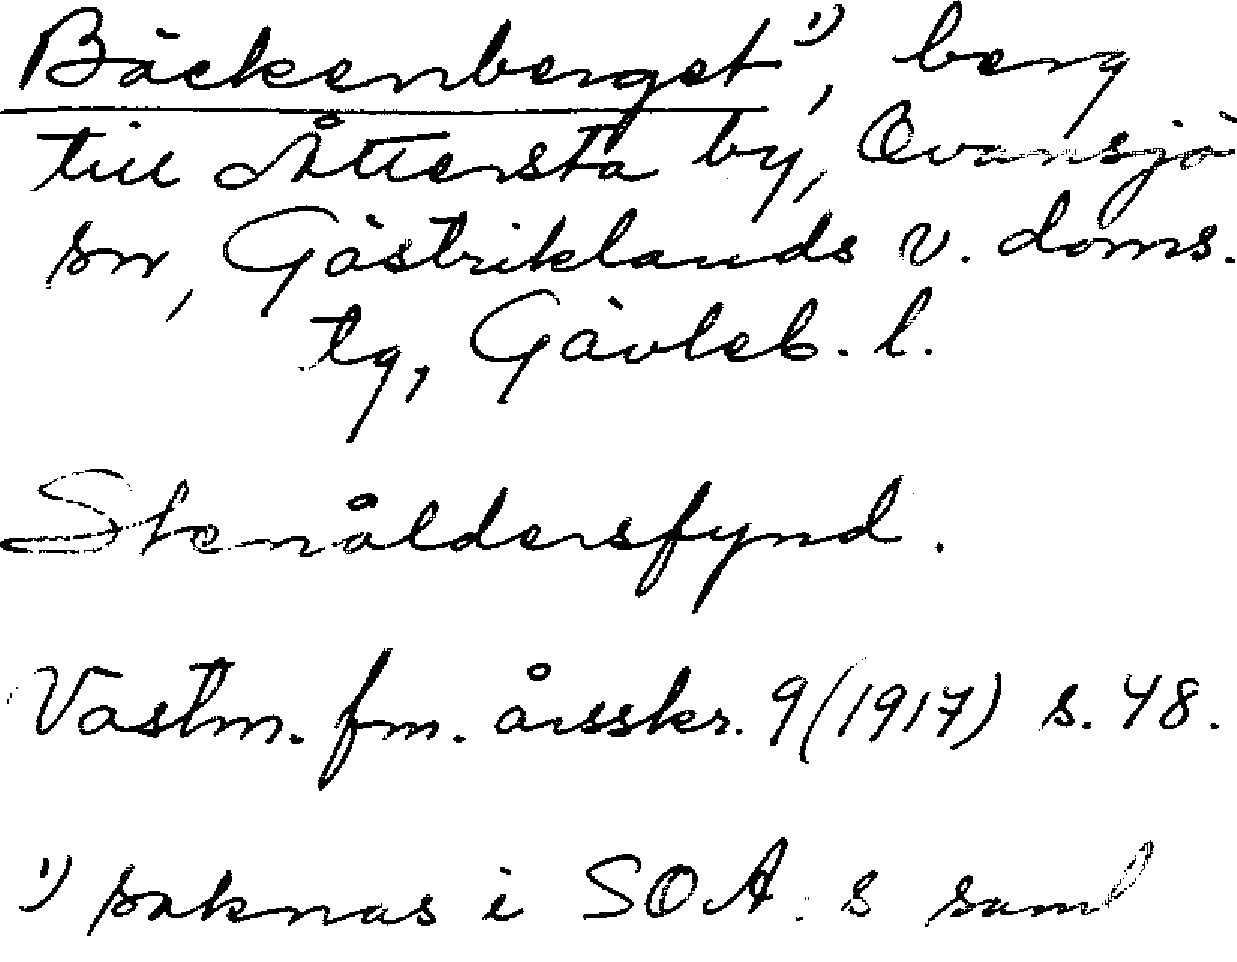 Bäckenberget¹⁾, berg
till Åttersta by, Ovansjö
sn, Gästriklands v. doms.
tg, Gävleb. l.
Stenåldersfynd.
Västm. fm. årsskr. 9 (1917) s. 48.
¹⁾ saknas i SOA:s saml